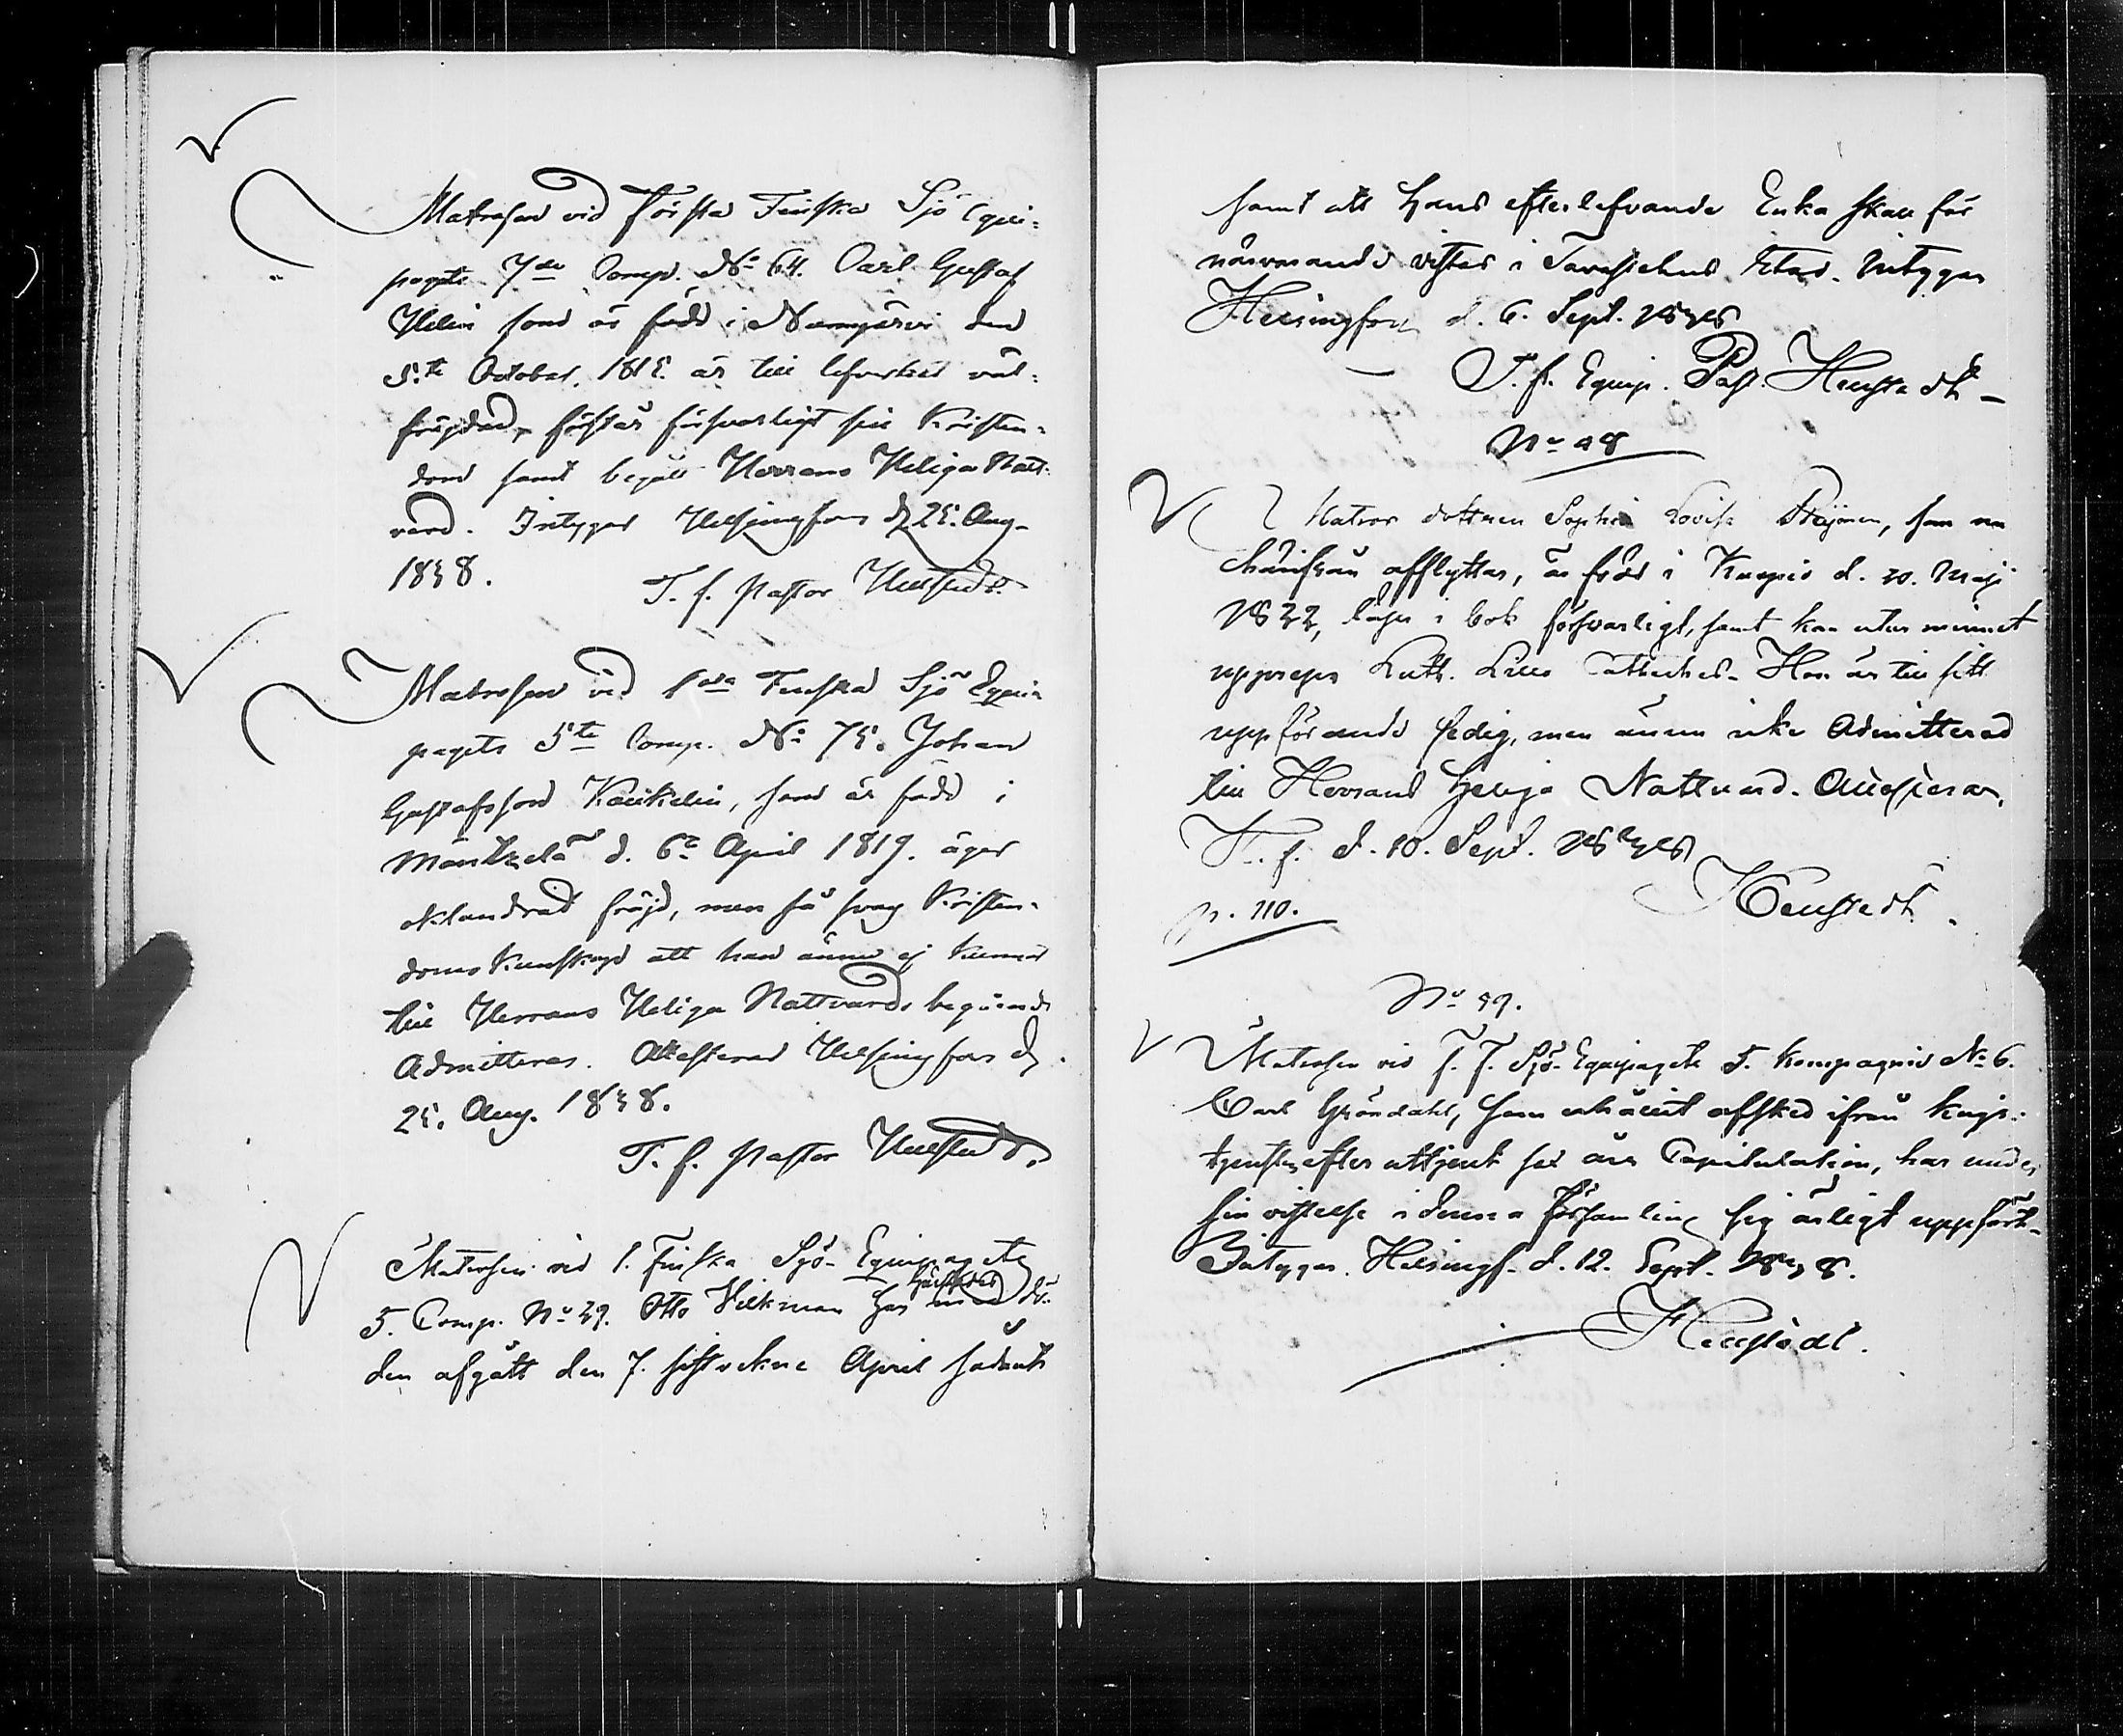 Matrosen vid Första Finska Sjö Equi-
pagets 7de Comp. No 64. Carl Gustaf
Helin som är född i Nummjärvi den
5.te October 1815. är till lefvernet väl-
frägdad, förstår försvarligt sin Kristen-
dom samt begått Herrans Heliga Natt-
vard. Intygar Helsingfors d 25. Aug.
1838.
T. f. Pastor Hellstedt.
Matrosen vid 1sta Finska Sjö Equi-
pagets 5te Comp. No 75. Johan
Gustafsson Kaukelin, som är född i
Mäntzelä d. 6te April 1819. äger
oklandrad fräjd, men så svag Kristen-
doms Kunskap att han ännu ej kunnat
till Herrans Heliga Nattvards begående
Admitteras. Attesterar Helsingfors d.
25. Aug. 1838.
T. f. Pastor Hellstedt.
Matrosen vid 1. Finska Sjö-Equipagets
5. Comp. No 39. Otto Vilkman har med dö-
den afgått den 7. sistvekne April
samt att hans efterlefvande Enka skall för
närvarande vistas i Tavastehus stad. Intygar
Helsingfors d. 6. Sept. 1838
T. f. Equip. Past. Hellstedt
No 48
Matros dottren Sophia Lovisa, som nu
härifrån afflyttar, är född i Kuopio d. 20. Maji
1822, läser i bok försvarligt, samt kan utur minnet
upprepa Luth. Lilla Catheches. Hon är till sitt
uppförande sedig, men ännu icke Admitterad
till Herrans Heliga Nattvard. Attesterar,
H. f. d. 10. Sept. 1838
Hellstedt.
p. 110.
No 49.
Matrosen vid f. f. Sjö-Equipagets 5. Kompagnie No 6.
Carl Gröndahl, som erhållit afsked ifrån krigs-
tjensten efter uttjent sex års Capitulation, har under
sin vistelse i denna Församling sig ärligt uppfört.
Intygar. Helsingf. d. 12. Sept. 1838.
Hellstedt.